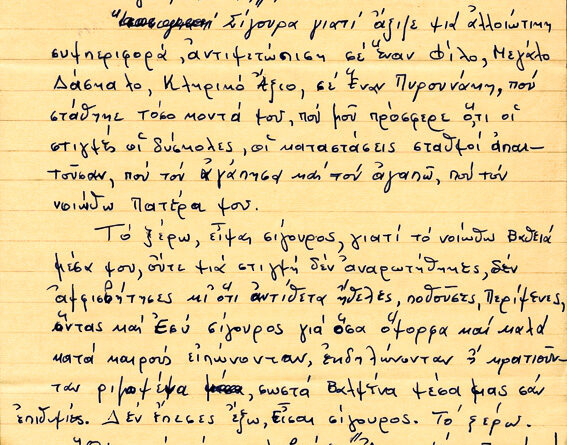 Σίγουρα γιατί ἄξιζε μιά ἀλλοιώτικη
συμπεριφορά, ἀντιμετώπιση σέ Ἕναν Φίλο, Μεγάλο
Δάσκαλο, Κληρικό Ἄξιο, σέ Ἕναν Πυρουνάκη, πού
στάθηκε τόσο κοντά μου, πού μοῦ πρόσφερε ὅ,τι οἱ
στιγμές οἱ δύσκολες, οἱ καταστάσεις σταθμοί ἀπαι-
τοῦσαν, πού τόν ἀγάπησα καί τόν ἀγαπῶ, πού τόν
νοιώθω Πατέρα μου.
Τό ξέρω, εἶμαι σίγουρος, γιατί τό νοιώθω βαθειά
μέσα μου, οὔτε μιά στιγμή δέν ἀναρωτήθηκες, δέν
ἀμφισβήτησες κι ὅτι ἀντίθετα ἤθελες, ποθοῦσες, περίμενες,
ὄντας καί Ἐσύ σίγουρος γιά ὅσα ὄμορφα καί καλά
κατά καιρούς εἰπώνονταν, ἐκδηλώνονταν ἤ κρατιοῦν-
ταν ριζωμένα, σωστά βαλμένα μέσα μας σάν
ἐπιθυμίες. Δέν ἔπεσες ἔξω, Εἶσαι σίγουρος. Τό ξέρω.